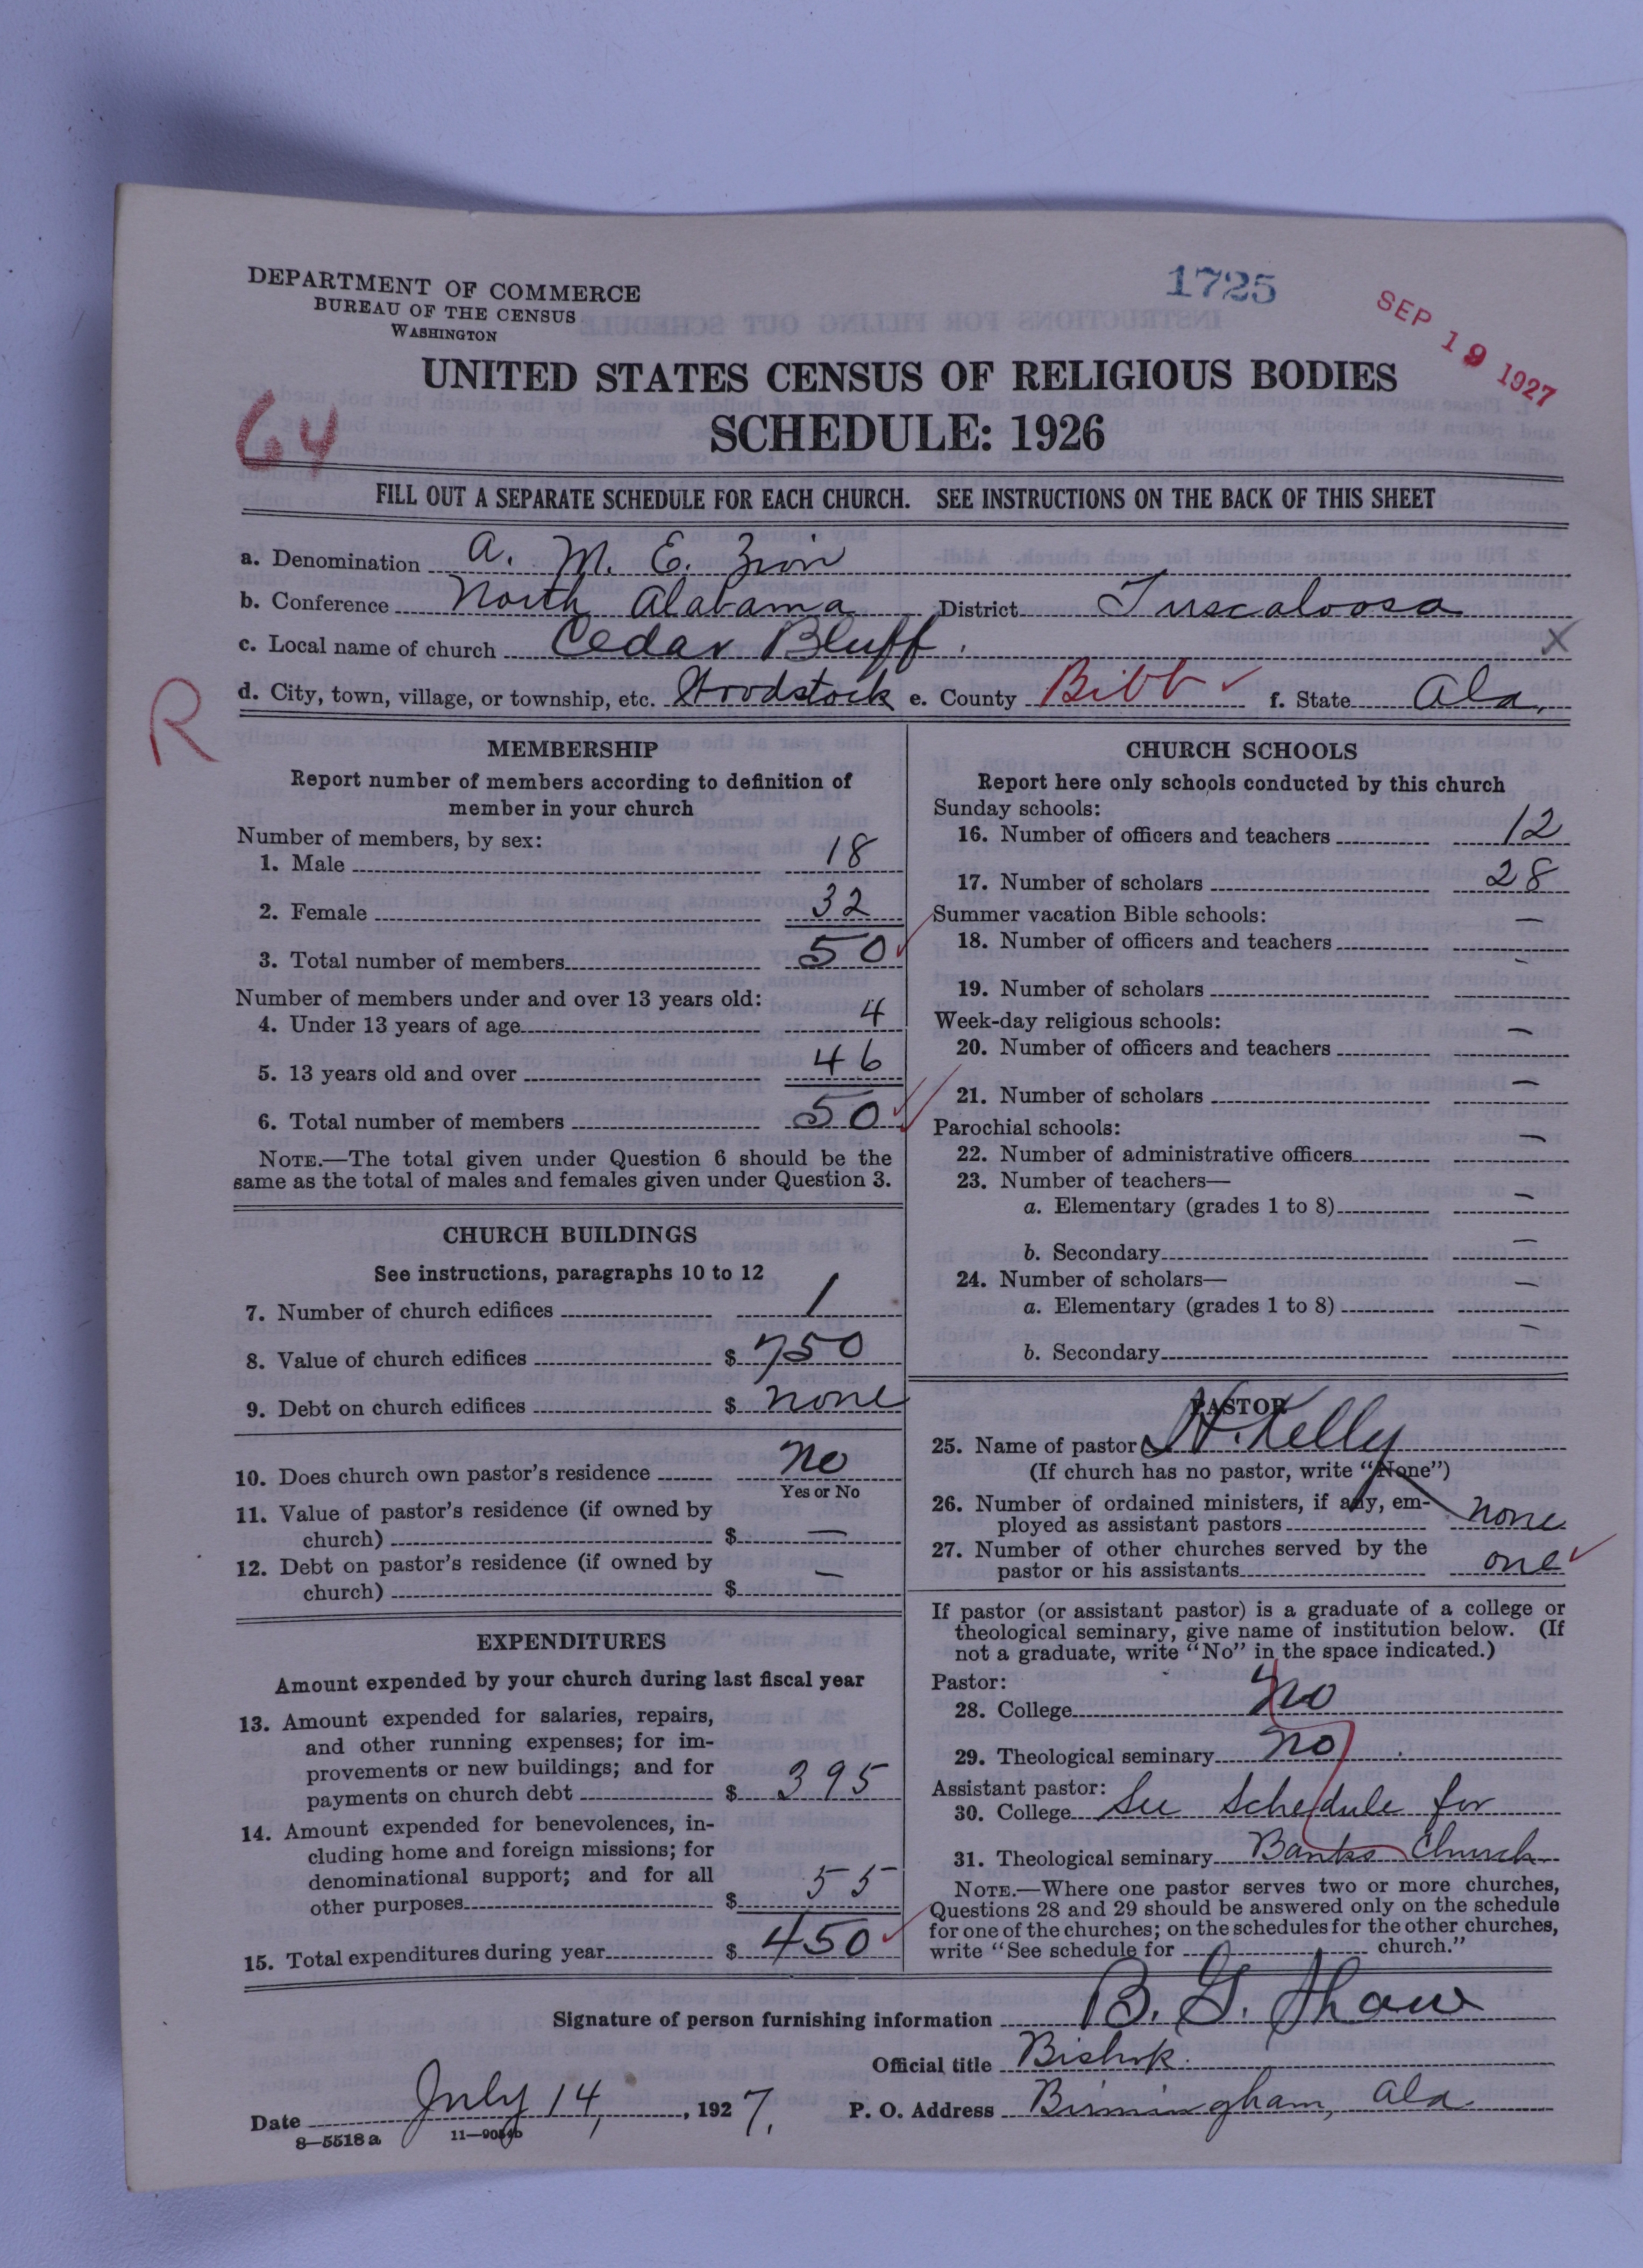 DEPARTMENT OF COMMERCE
BUREAU OF THE CENSUS
WASHINGTON
1725
SEP 19 1927
UNITED STATES CENSUS OF RELIGIOUS BODIES
SCHEDULE: 1926
64
FILL OUT A SEPARATE SCHEDULE FOR EACH CHURCH. SEE INSTRUCTIONS ON THE BACK OF THIS SHEET
a. Denomination A. M. E. Zion
b. Conference North Alabama District Tuscaloosa
c. Local name of church Cedar Bluff X
d. City, town, village, or township, etc. Woodstock e. County Bibb f. State Ala.
R
MEMBERSHIP
Report number of members according to definition of
member in your church
Number of members, by sex:
1. Male 18
2. Female 32
3. Total number of members 50
Number of members under and over 13 years old:
4. Under 13 years of age 4
5. 13 years old and over 46
6. Total number of members 50
NOTE.—The total given under Question 6 should be the
same as the total of males and females given under Question 3.
CHURCH BUILDINGS
See instructions, paragraphs 10 to 12
7. Number of church edifices 1
8. Value of church edifices $ 750
9. Debt on church edifices $ none
10. Does church own pastor's residence no
Yes or No
11. Value of pastor's residence (if owned by
church) $ —
12. Debt on pastor's residence (if owned by
church) $ —
EXPENDITURES
Amount expended by your church during last fiscal year
13. Amount expended for salaries, repairs,
and other running expenses; for im-
provements or new buildings; and for
payments on church debt $ 395
14. Amount expended for benevolences, in-
cluding home and foreign missions; for
denominational support; and for all
other purposes $ 55
15. Total expenditures during year $ 450
CHURCH SCHOOLS
Report here only schools conducted by this church
Sunday schools:
16. Number of officers and teachers 12
17. Number of scholars 28
Summer vacation Bible schools:
18. Number of officers and teachers —
19. Number of scholars —
Week-day religious schools:
20. Number of officers and teachers —
21. Number of scholars —
Parochial schools:
22. Number of administrative officers —
23. Number of teachers—
a. Elementary (grades 1 to 8) —
b. Secondary —
24. Number of scholars—
a. Elementary (grades 1 to 8) —
b. Secondary —
PASTOR
25. Name of pastor H. Kelly
(If church has no pastor, write "None")
26. Number of ordained ministers, if any, em-
ployed as assistant pastors none
27. Number of other churches served by the
pastor or his assistants one
If pastor (or assistant pastor) is a graduate of a college or
theological seminary, give name of institution below. (If
not a graduate, write "No" in the space indicated.)
Pastor:
28. College no
29. Theological seminary no
Assistant pastor:
30. College See Schedule for
31. Theological seminary Banks Church
NOTE.—Where one pastor serves two or more churches,
Questions 28 and 29 should be answered only on the schedule
for one of the churches; on the schedules for the other churches,
write "See schedule for church."
Signature of person furnishing information B. G. Shaw
Official title Bishop.
Date July 14, 1927. P. O. Address Birmingham, Ala.
8—5518 a